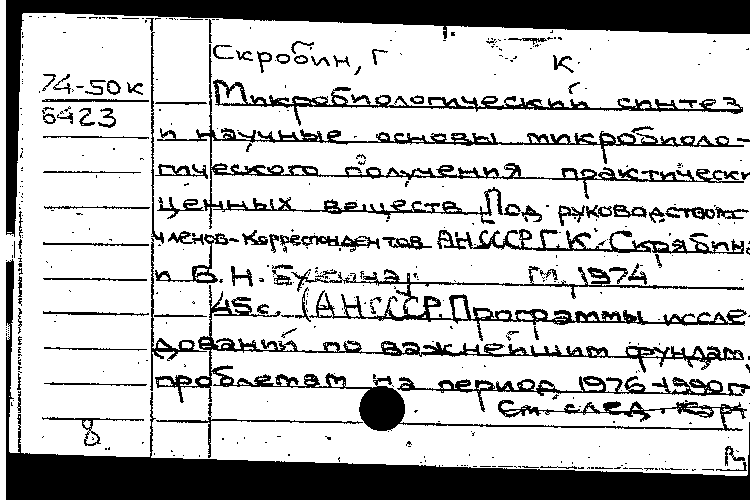 Скробин, Г К
74-50к
6423
Микробиологический синтез
и научные основы микробиоло-
гического получения практически
ценных веществ. Под руководством
членов-корреспондентов АН СССР Г.К. Скрябина
и В.Н. Букина. М., 1974
45с. (АН СССР. Программы иссле-
дований по важнейшим фундам.
проблемам на период 1976-1990г
См. след. карт
8